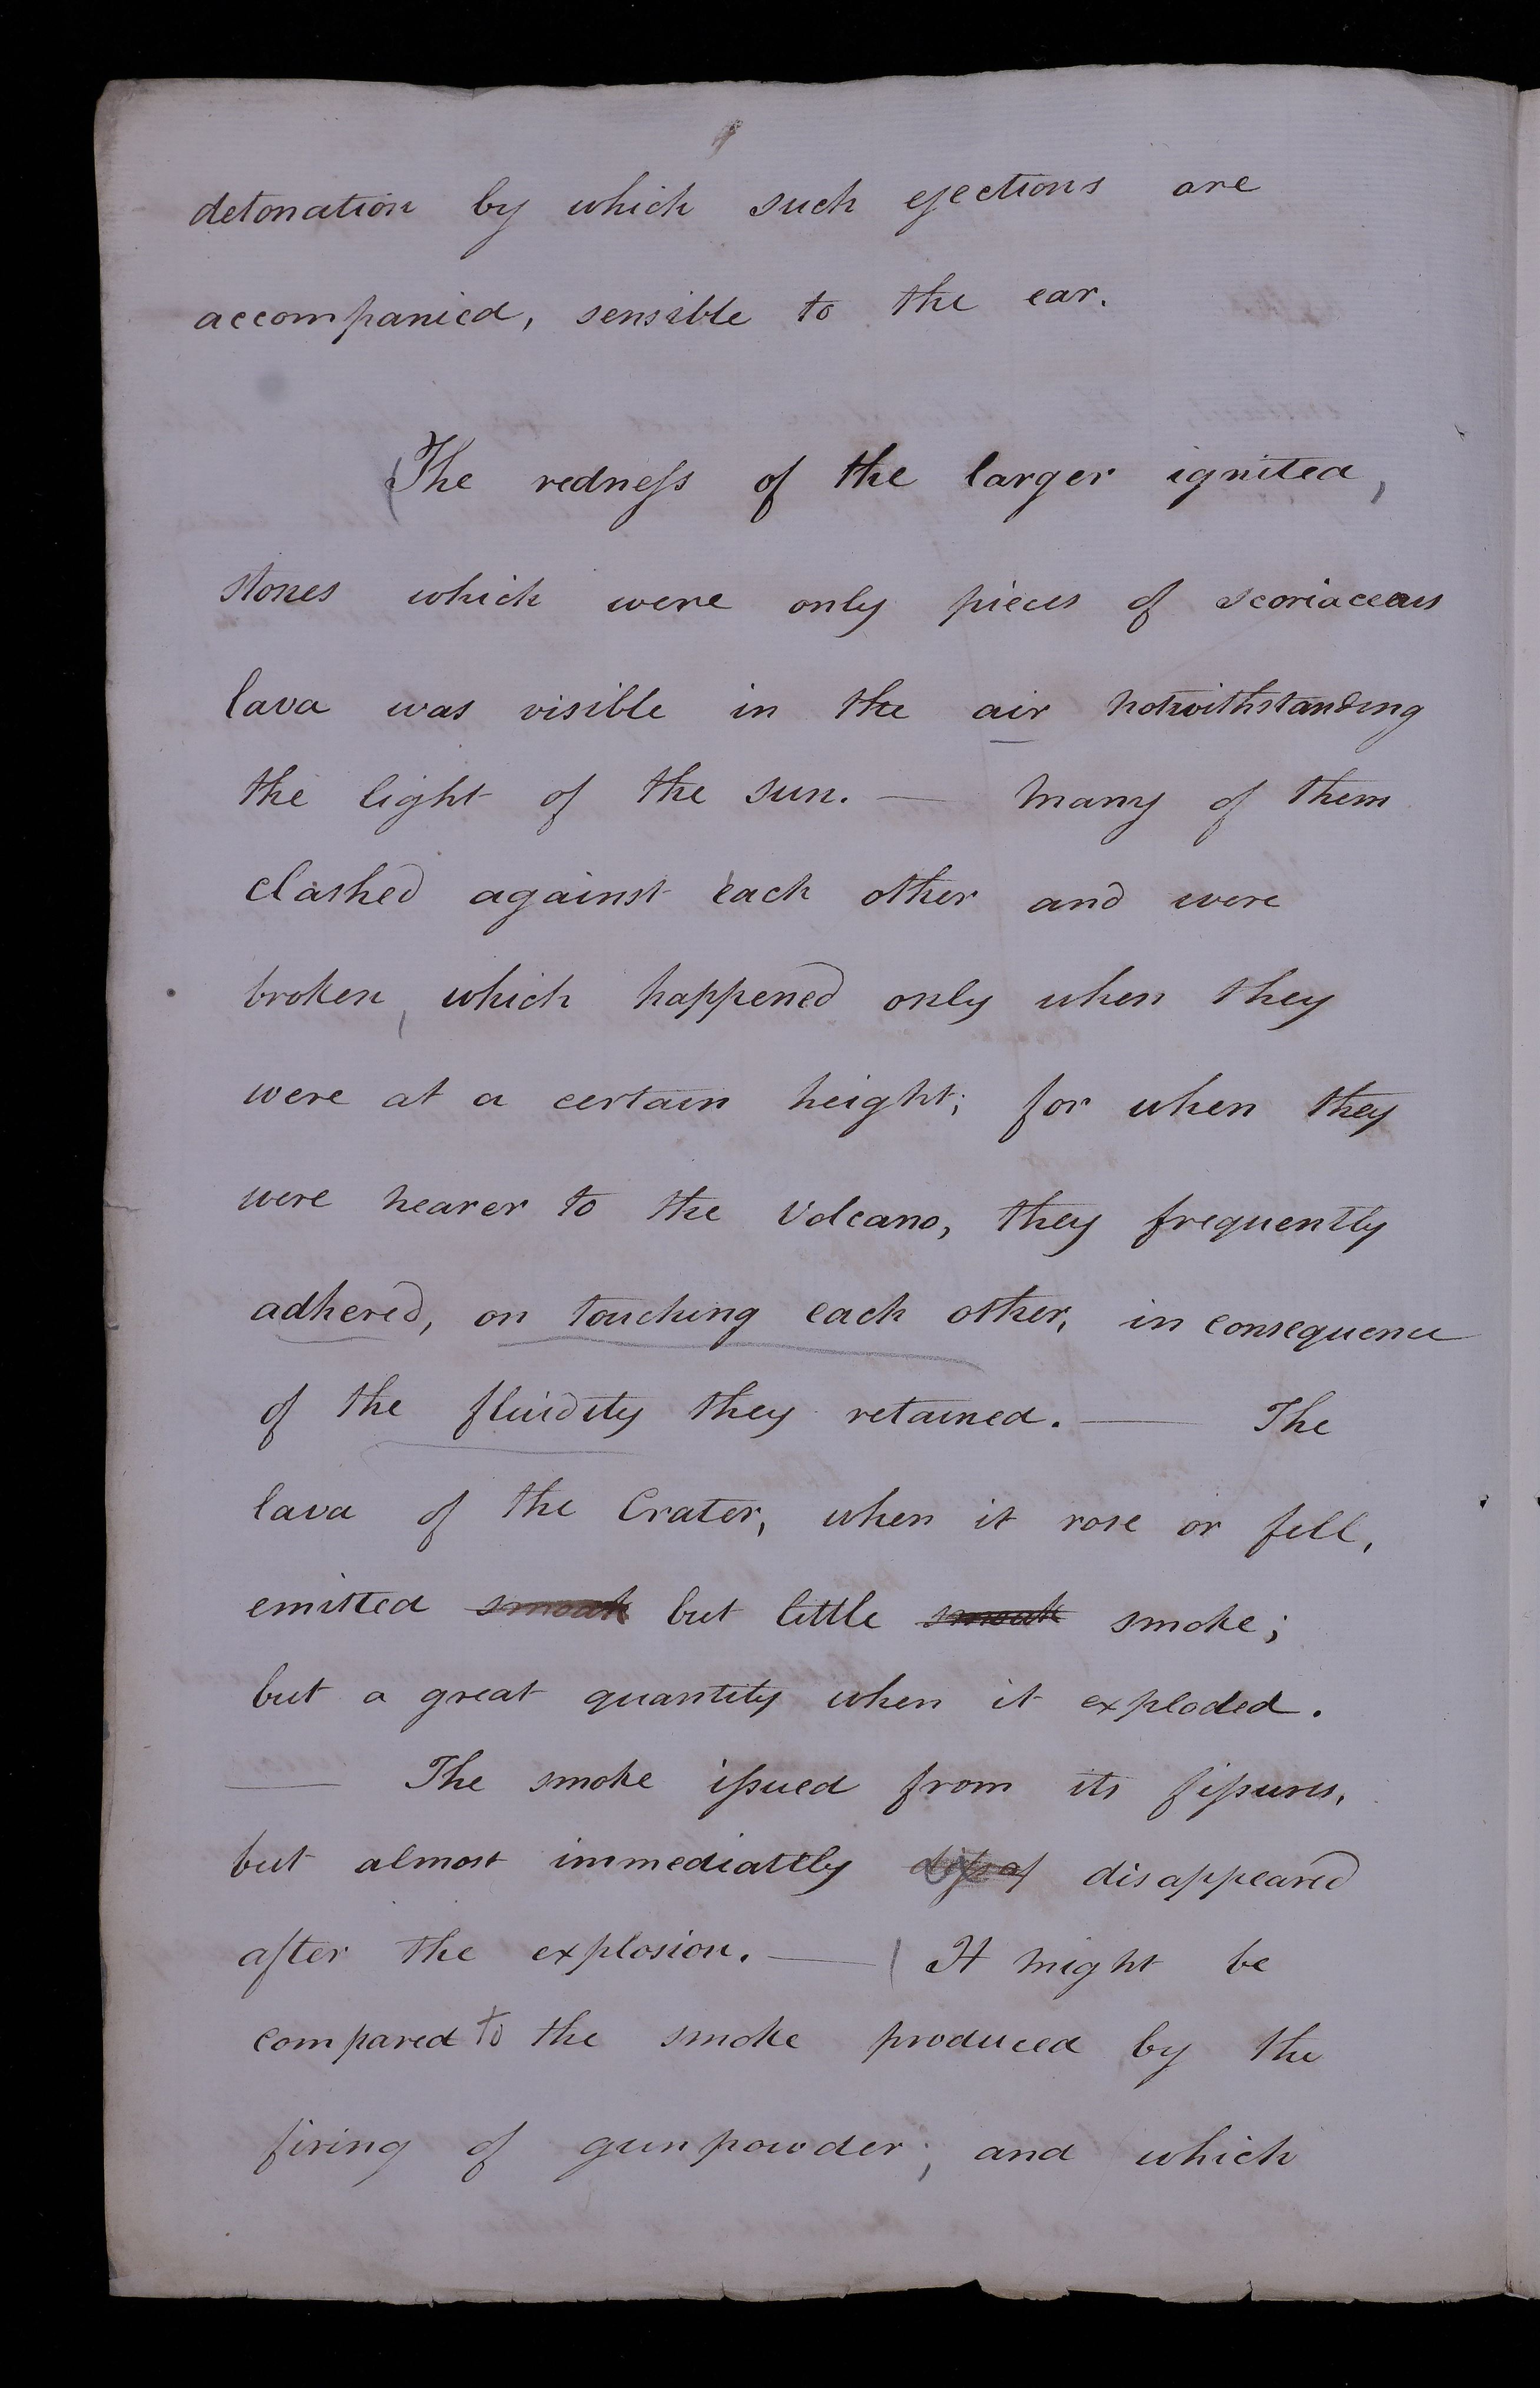 detonation by which such ejections are
accompanied, sensible to the ear.
(The redness of the larger ignited,
stones which were only pieces of scoriaceous
lava was visible in the air notwithstanding
the light of the sun. — Many of them
clashed against each other and were
broken, which happened only when they
were at a certain height; for when they
were nearer to the Volcano, they frequently
adhered, on touching each other, in consequence
of the fluidity they retained. — The
lava of the Crater, when it rose or fell,
emitted smoak but little smoak smoke;
but a great quantity when it exploded.
— The smoke issued from its fissures,
but almost immediattly disapeared
after the explosion. — ( It might be
compared to the smoke produced by the
firing of gunpowder; and which